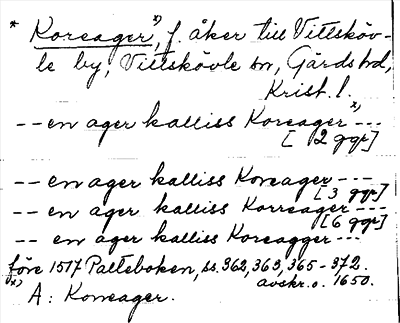 * Koreager*), f. åker till Vittsköv-
le by, Vittskövle sn, Gärds hd,
Krist. l.
-- en ager kalliss Koreager*) ---
[12 ggr]
-- en ager kalliss Koreager ---
[3 ggr]
-- en ager kalliss Korreager ---
[6 ggr]
-- en ager kalliss Koreagger ---
före 1517 Palteboken, ss. 362, 363, 365-372.
avskr. o. 1650.
*) A: Koreager.